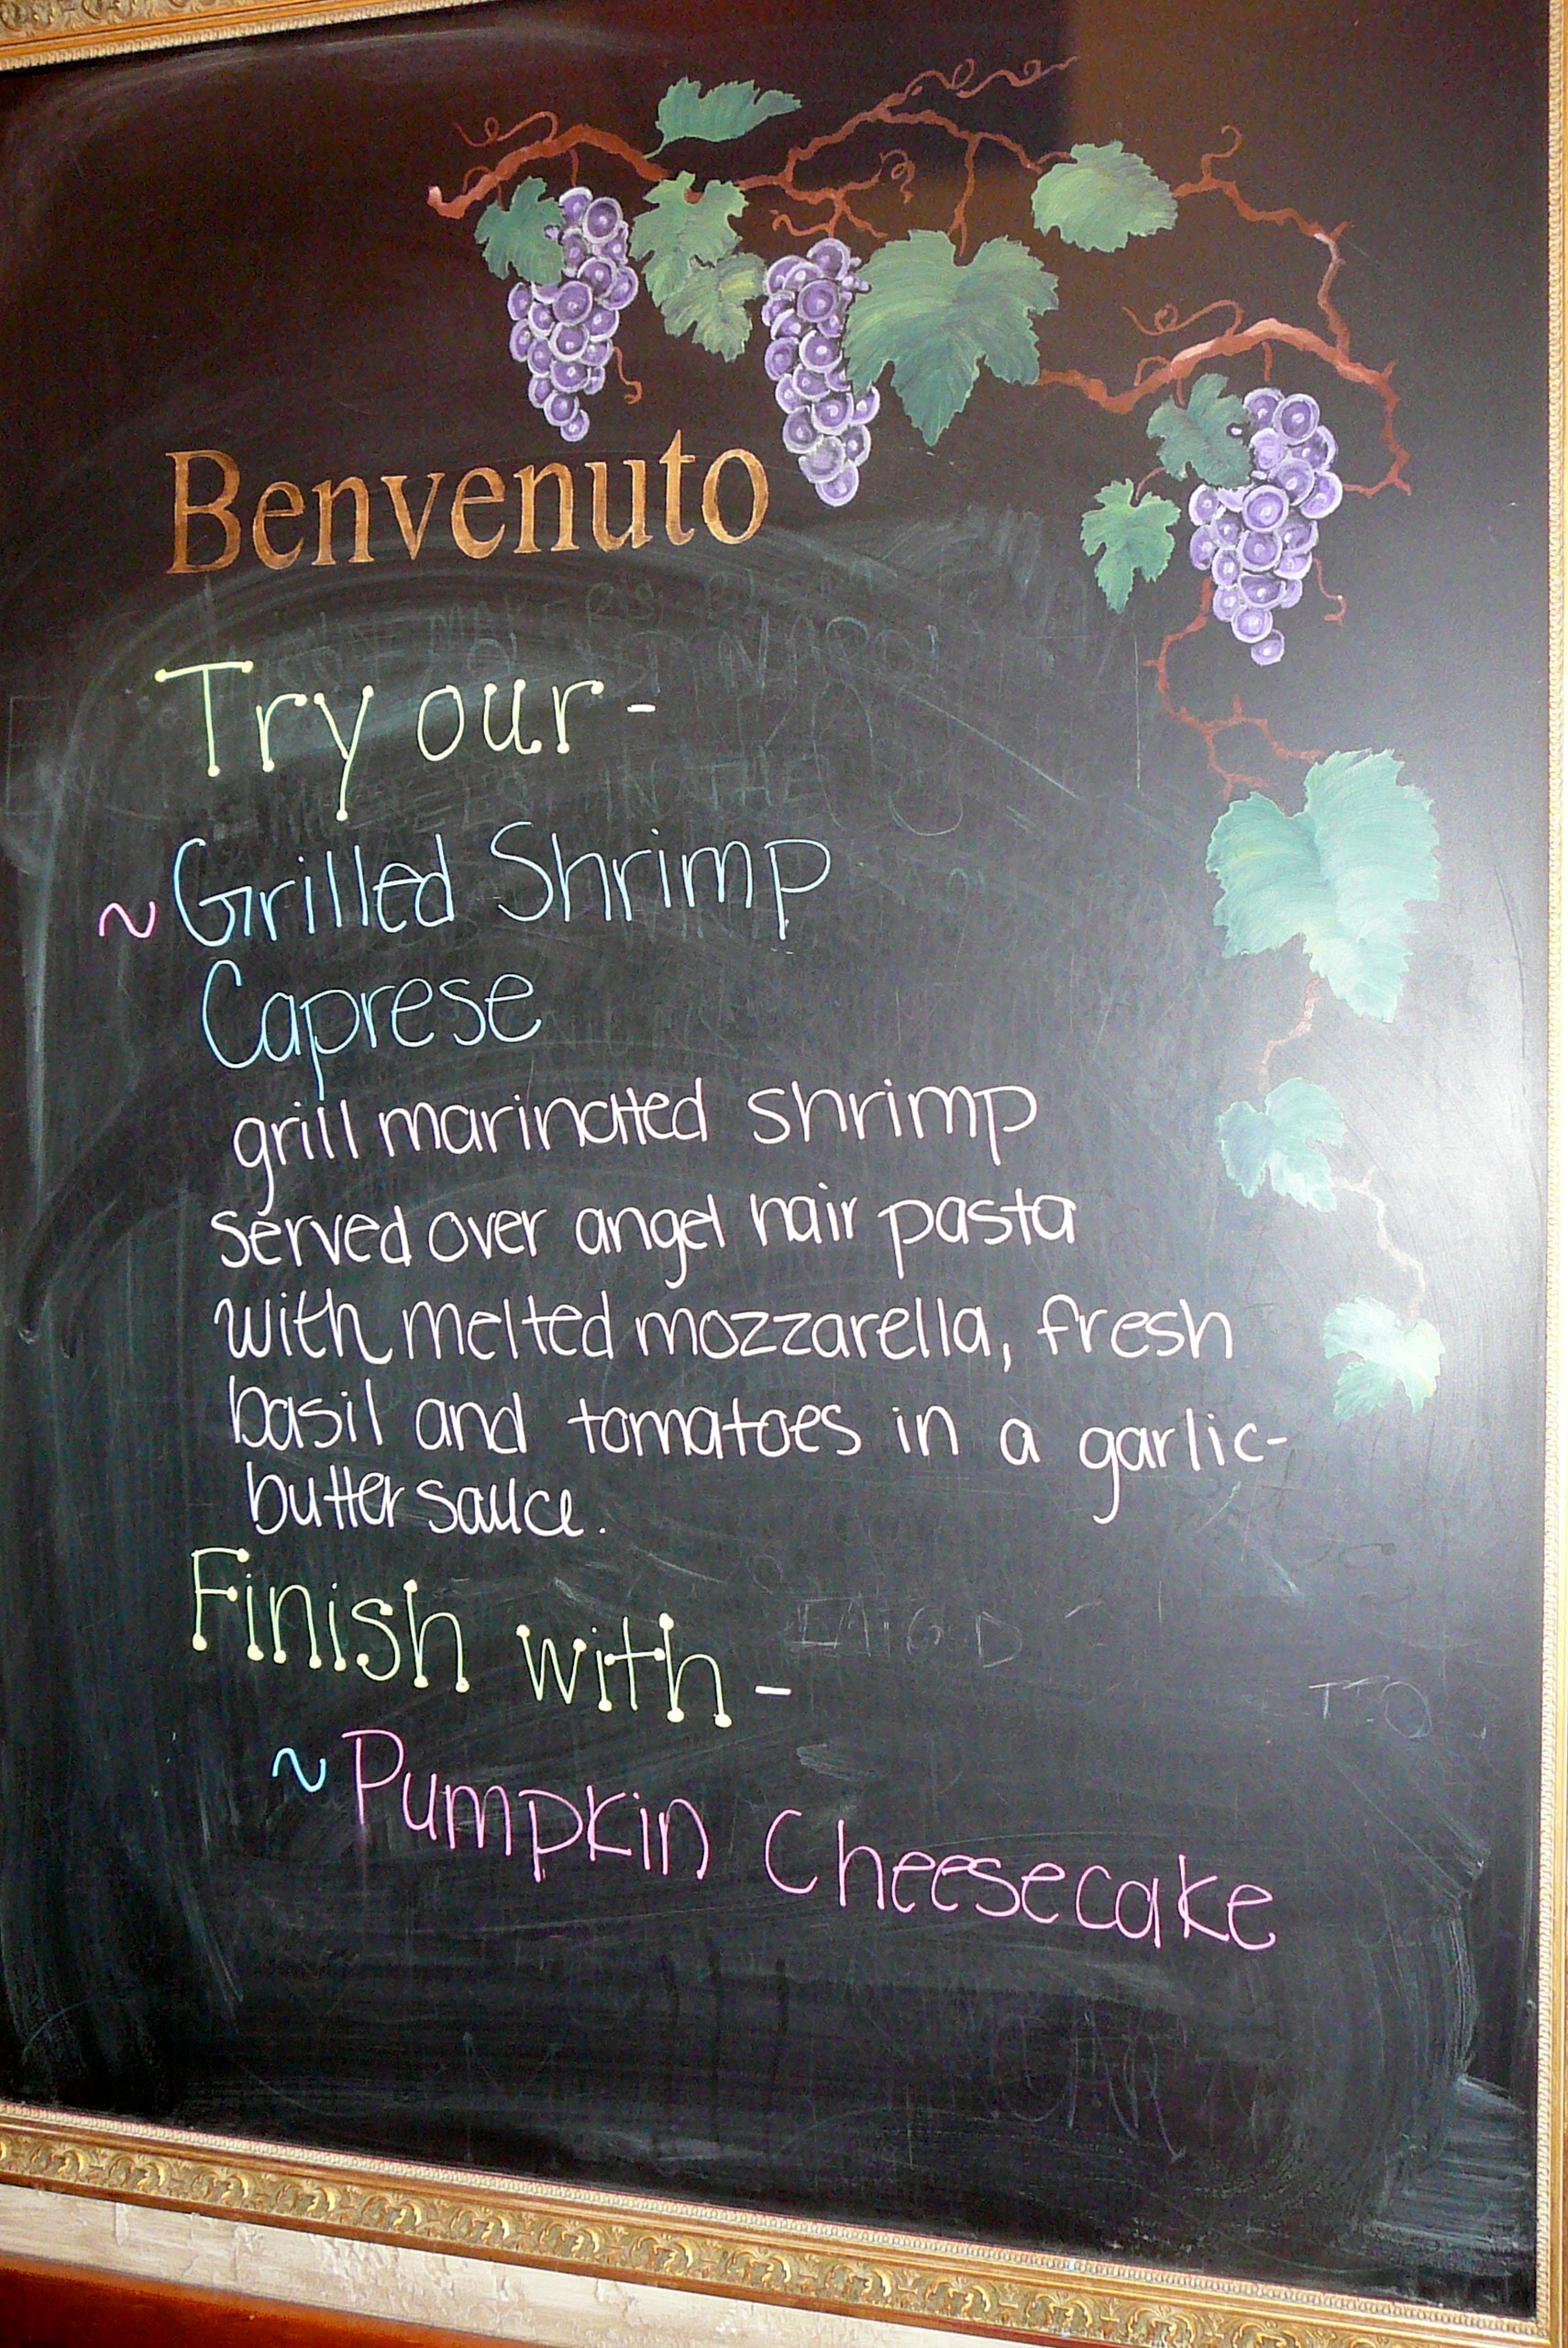 Benvenuto
Try our-
~Grilled Shrimp
Caprese
grill marinated shrimp
served over angel hair pasta
with melted mozzarella, fresh
basil and tomatoes in a garlic-
butter sauce.
Finish with-
~Pumpkin Cheesecake